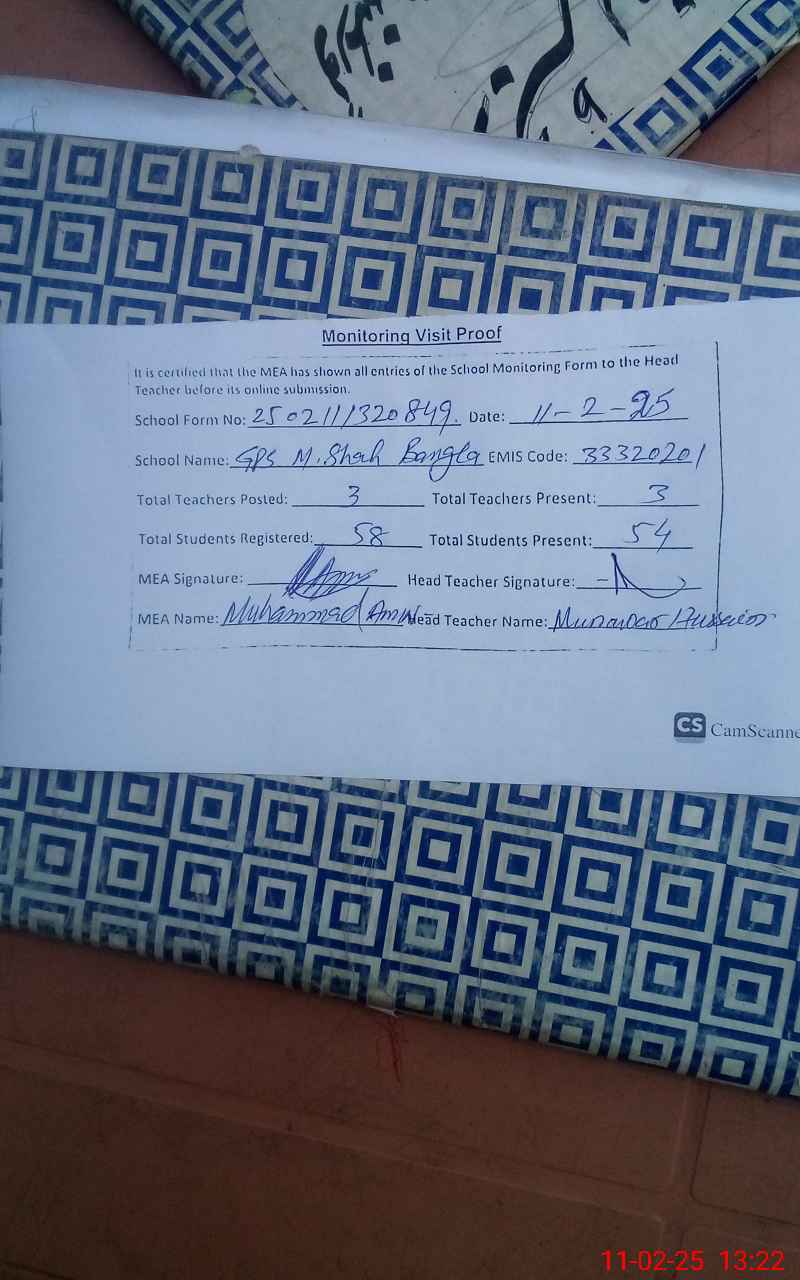 Monitoring Visit Proof
It is certified that the MEA has shown all entries of the School Monitoring Form to the Head
Teacher before its online submission.
School Form No: 2502111320849. Date: 11-2-25
School Name: GPS M. Shah Bangla EMIS Code: 33320201
Total Teachers Posted: 3 Total Teachers Present: 3
Total Students Registered: 58 Total Students Present: 54
MEA Signature: Head Teacher Signature:
MEA Name: Muhammad Amin Head Teacher Name: Munawar Hussain
CS CamScanne
11-02-25 13:22